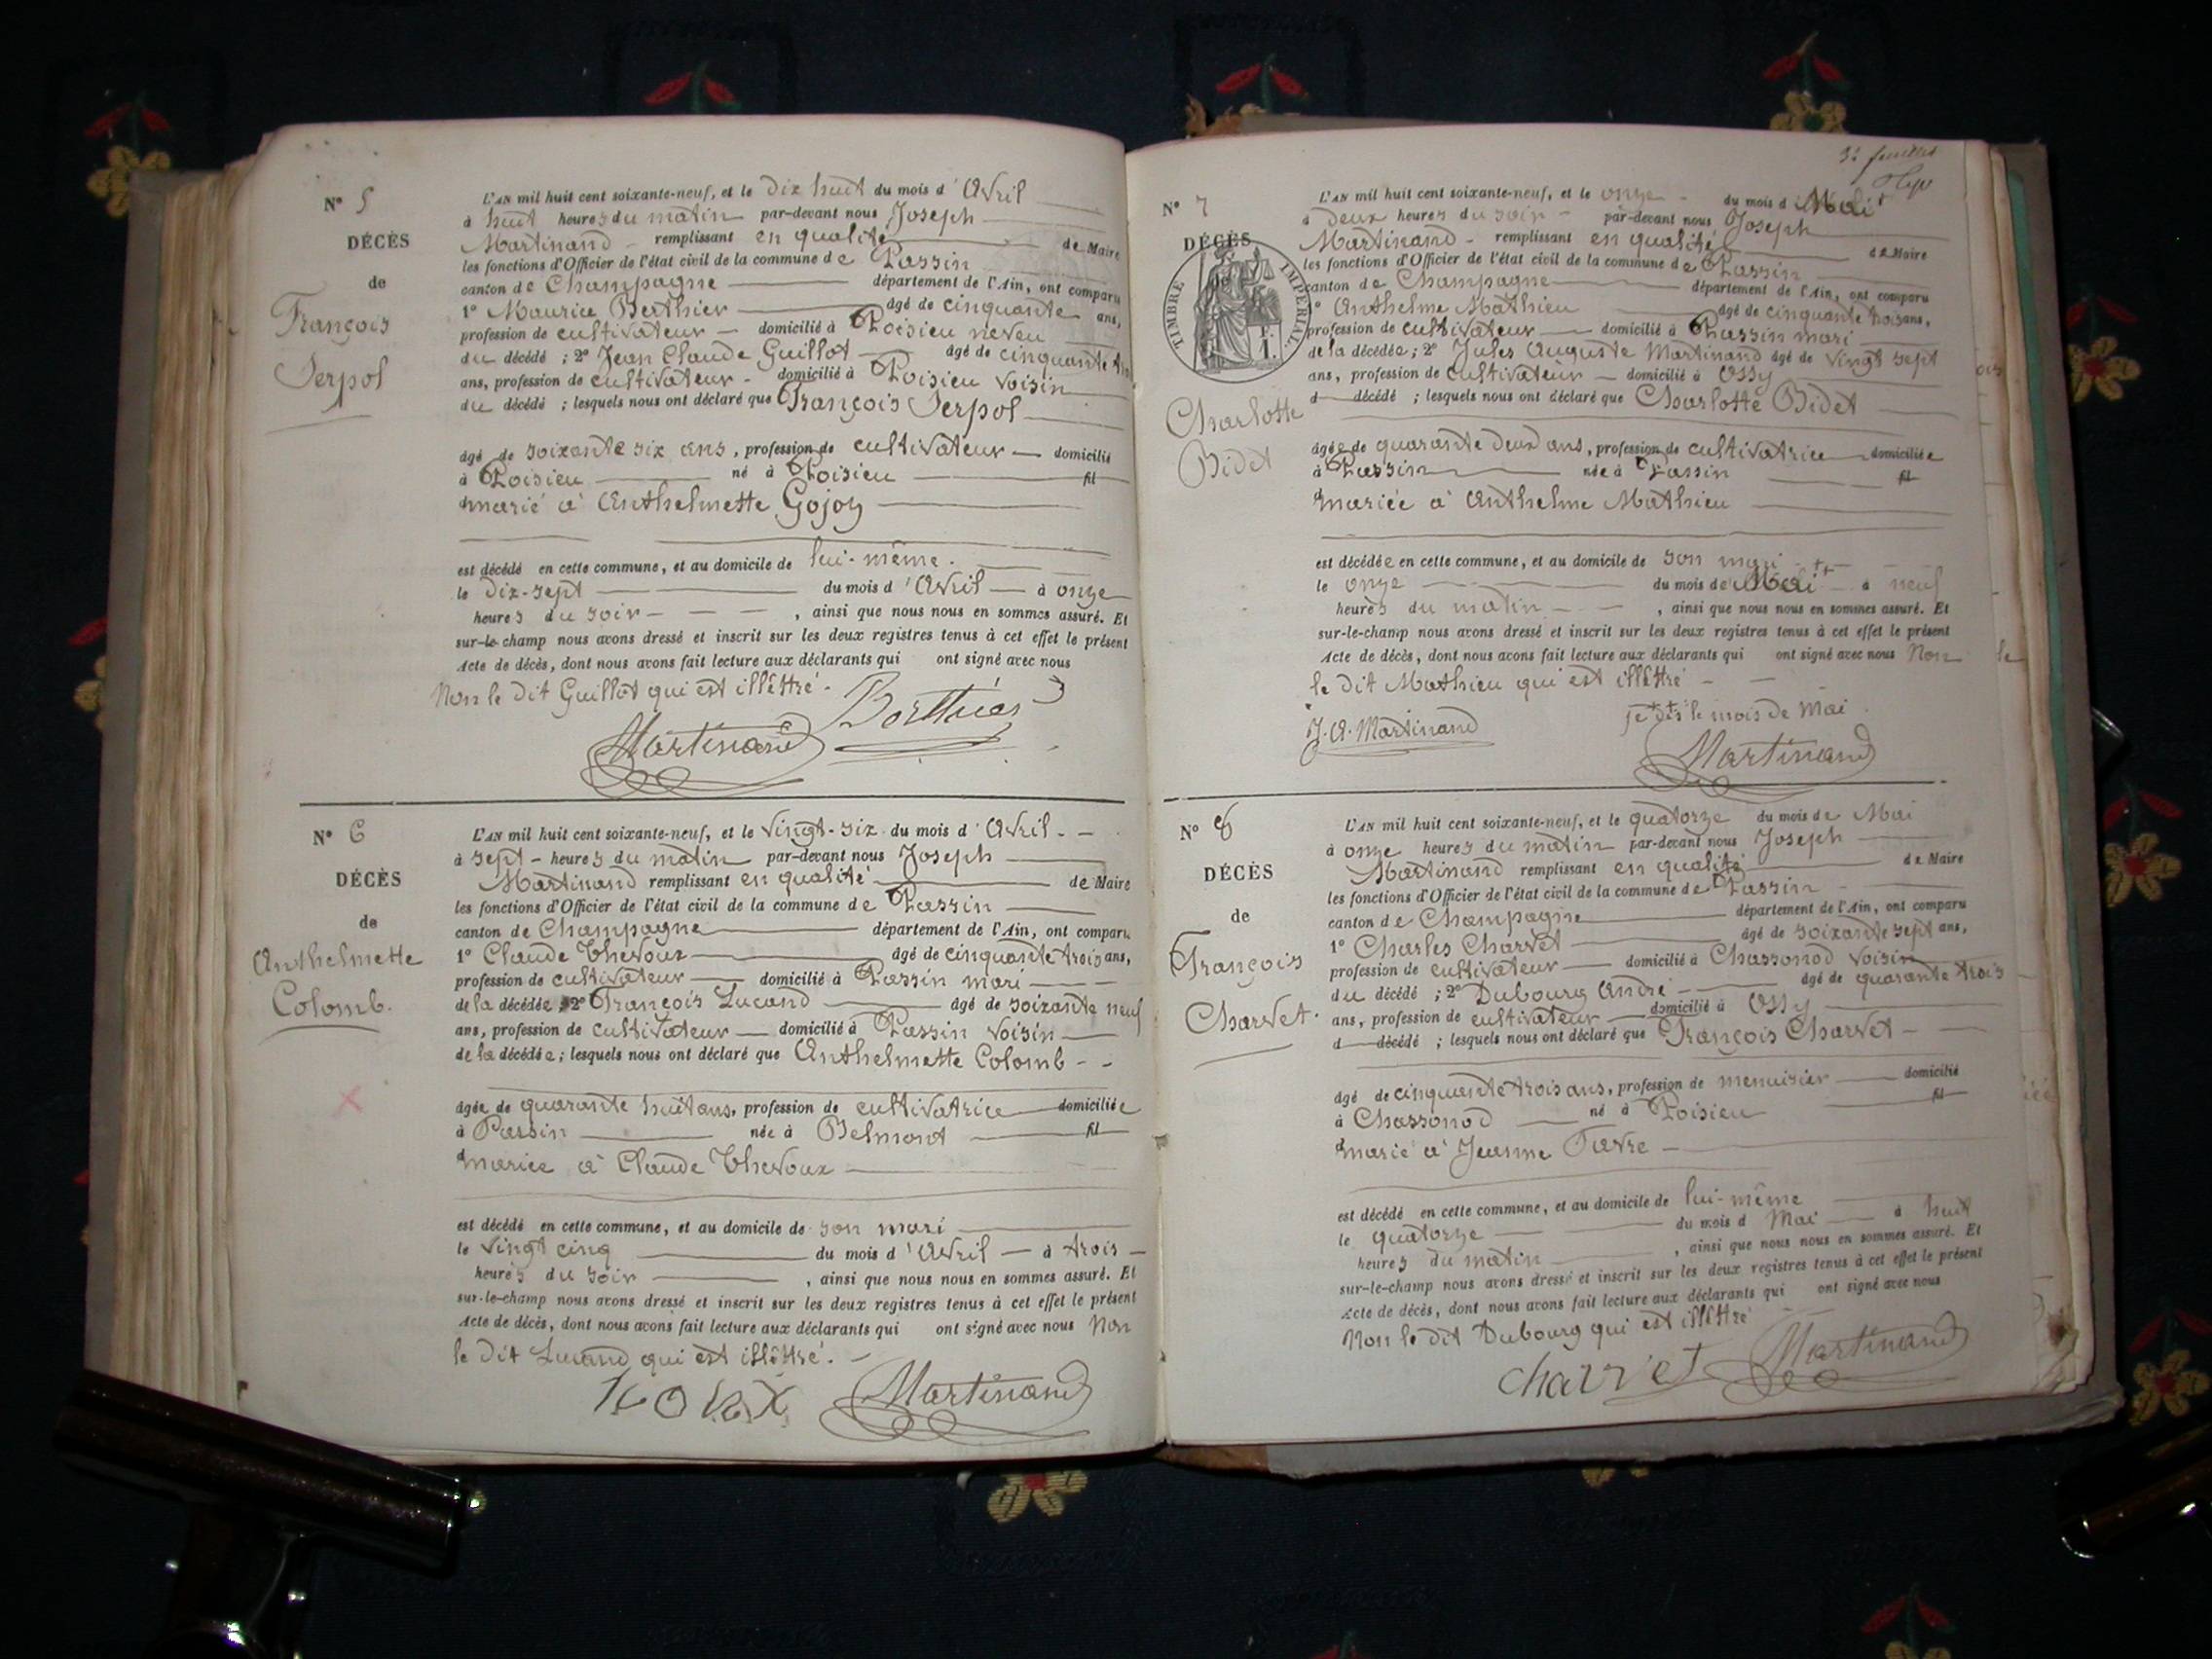 N° 5
DÉCÈS
de
François
Serpol
L'AN mil huit cent soixante-neuf, et le dix huit du mois d'Avril
à huit heures du matin par-devant nous Joseph
Martinand remplissant en qualité de Maire
les fonctions d'Officier de l'état civil de la commune de Passin
canton de Champagne département de l'Ain, ont comparu
1° Maurice Berthier âgé de cinquante ans,
profession de cultivateur domicilié à Poisieu neveu
du décédé ; 2° Jean Claude Guillot âgé de cinquante
ans, profession de cultivateur domicilié à Poisieu voisin
du décédé ; lesquels nous ont déclaré que François Serpol
âgé de soixante six ans, profession de cultivateur domicilié
à Poisieu né à Poisieu fil
marié à Anthelmette Gojoz
est décédé en cette commune, et au domicile de lui-même.
le dix-sept du mois d'Avril à onze
heures du soir, ainsi que nous nous en sommes assuré. Et
sur-le-champ nous avons dressé et inscrit sur les deux registres tenus à cet effet le présent
Acte de décès, dont nous avons fait lecture aux déclarants qui ont signé avec nous
Non le dit Guillot qui est illéttré.
Berthier
Martinand
N° 6
DÉCÈS
de
Anthelmette
Colomb.
L'AN mil huit cent soixante-neuf, et le vingt-six du mois d'Avril
à sept heures du matin par-devant nous Joseph
Martinand remplissant en qualité de Maire
les fonctions d'Officier de l'état civil de la commune de Passin
canton de Champagne département de l'Ain, ont comparu
1° Claude Thevoux âgé de cinquante trois ans,
profession de cultivateur domicilié à Passin mari
de la décédée 2° François Lucand âgé de soixante neuf
ans, profession de cultivateur domicilié à Passin voisin
de la décédée ; lesquels nous ont déclaré que Anthelmette Colomb
âgée de quarante huit ans, profession de cultivatrice domiciliée
à Passin née à Belmont fil
mariée à Claude Thevoux
est décédé en cette commune, et au domicile de son mari
le vingt cinq du mois d'Avril à trois
heures du soir, ainsi que nous nous en sommes assuré. Et
sur-le-champ nous avons dressé et inscrit sur les deux registres tenus à cet effet le présent
Acte de décès, dont nous avons fait lecture aux déclarants qui ont signé avec nous Non
le dit Lucand qui est illéttré.
Martinand
3e feuillet
N° 7
DÉCÈS
de
TIMBRE IMPÉRIAL
Charlotte
Bidet
L'AN mil huit cent soixante-neuf, et le onze du mois d Mai
à deux heures du soir par-devant nous Joseph
Martinand remplissant en qualité de Maire
les fonctions d'Officier de l'état civil de la commune de Passin
canton de Champagne département de l'Ain, ont comparu
1° Anthelme Mathieu âgé de cinquante trois ans,
profession de cultivateur domicilié à Passin mari
de la décédée ; 2° Jules Auguste Martinand âgé de vingt sept
ans, profession de cultivateur domicilié à Ossy
d décédé ; lesquels nous ont déclaré que Charlotte Bidet
âgée de quarante deux ans, profession de cultivatrice domiciliée
à Passin née à Passin fil
mariée à Anthelme Mathieu
est décédée en cette commune, et au domicile de son mari
le onze du mois de Mai à neuf
heures du matin, ainsi que nous nous en sommes assuré. Et
sur-le-champ nous avons dressé et inscrit sur les deux registres tenus à cet effet le présent
Acte de décès, dont nous avons fait lecture aux déclarants qui ont signé avec nous Non
le dit Mathieu qui est illéttré
je dis le mois de Mai
J. A. Martinand
Martinand
N° 8
DÉCÈS
de
François
Charvet.
L'AN mil huit cent soixante-neuf, et le quatorze du mois de Mai
à onze heures du matin par-devant nous Joseph
Martinand remplissant en qualité de Maire
les fonctions d'Officier de l'état civil de la commune de Passin
canton de Champagne département de l'Ain, ont comparu
1° Charles Charvet âgé de soixante sept ans,
profession de cultivateur domicilié à Chassonod voisin
du décédé ; 2° Dubourg André âgé de quarante trois
ans, profession de cultivateur domicilié à Ossy
d décédé ; lesquels nous ont déclaré que François Charvet
âgé de cinquante trois ans, profession de menuisier domicilié
à Chassonod né à Poisieu fil
marié à Jeanne Favre
est décédé en cette commune, et au domicile de lui-même
le quatorze du mois d Mai à huit
heures du matin, ainsi que nous nous en sommes assuré. Et
sur-le-champ nous avons dressé et inscrit sur les deux registres tenus à cet effet le présent
Acte de décès, dont nous avons fait lecture aux déclarants qui ont signé avec nous
Non le dit Dubourg qui est illéttré
charvet Martinand